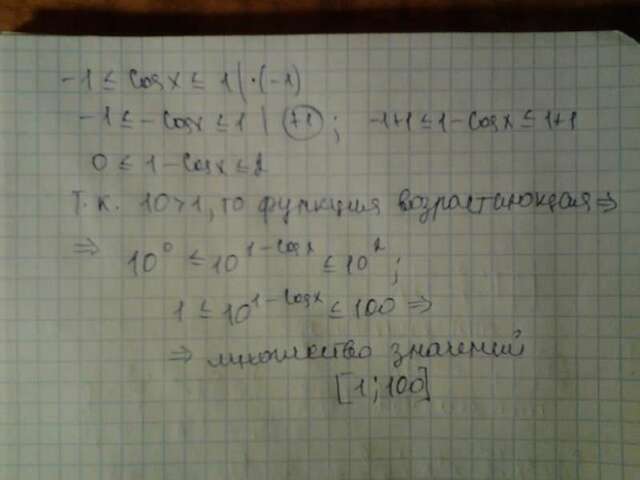 -1 ≤ cos x ≤ 1 | ·(-1)
-1 ≤ -cos x ≤ 1 | +1 ; -1+1 ≤ 1 - cos x ≤ 1+1
0 ≤ 1 - cos x ≤ 2
Т.к. 10>1, то функция возрастающая ⇒
⇒ 10⁰ ≤ 10^(1-cos x) ≤ 10² ;
1 ≤ 10^(1-cos x) ≤ 100 ⇒
⇒ множество значений
[1;100]